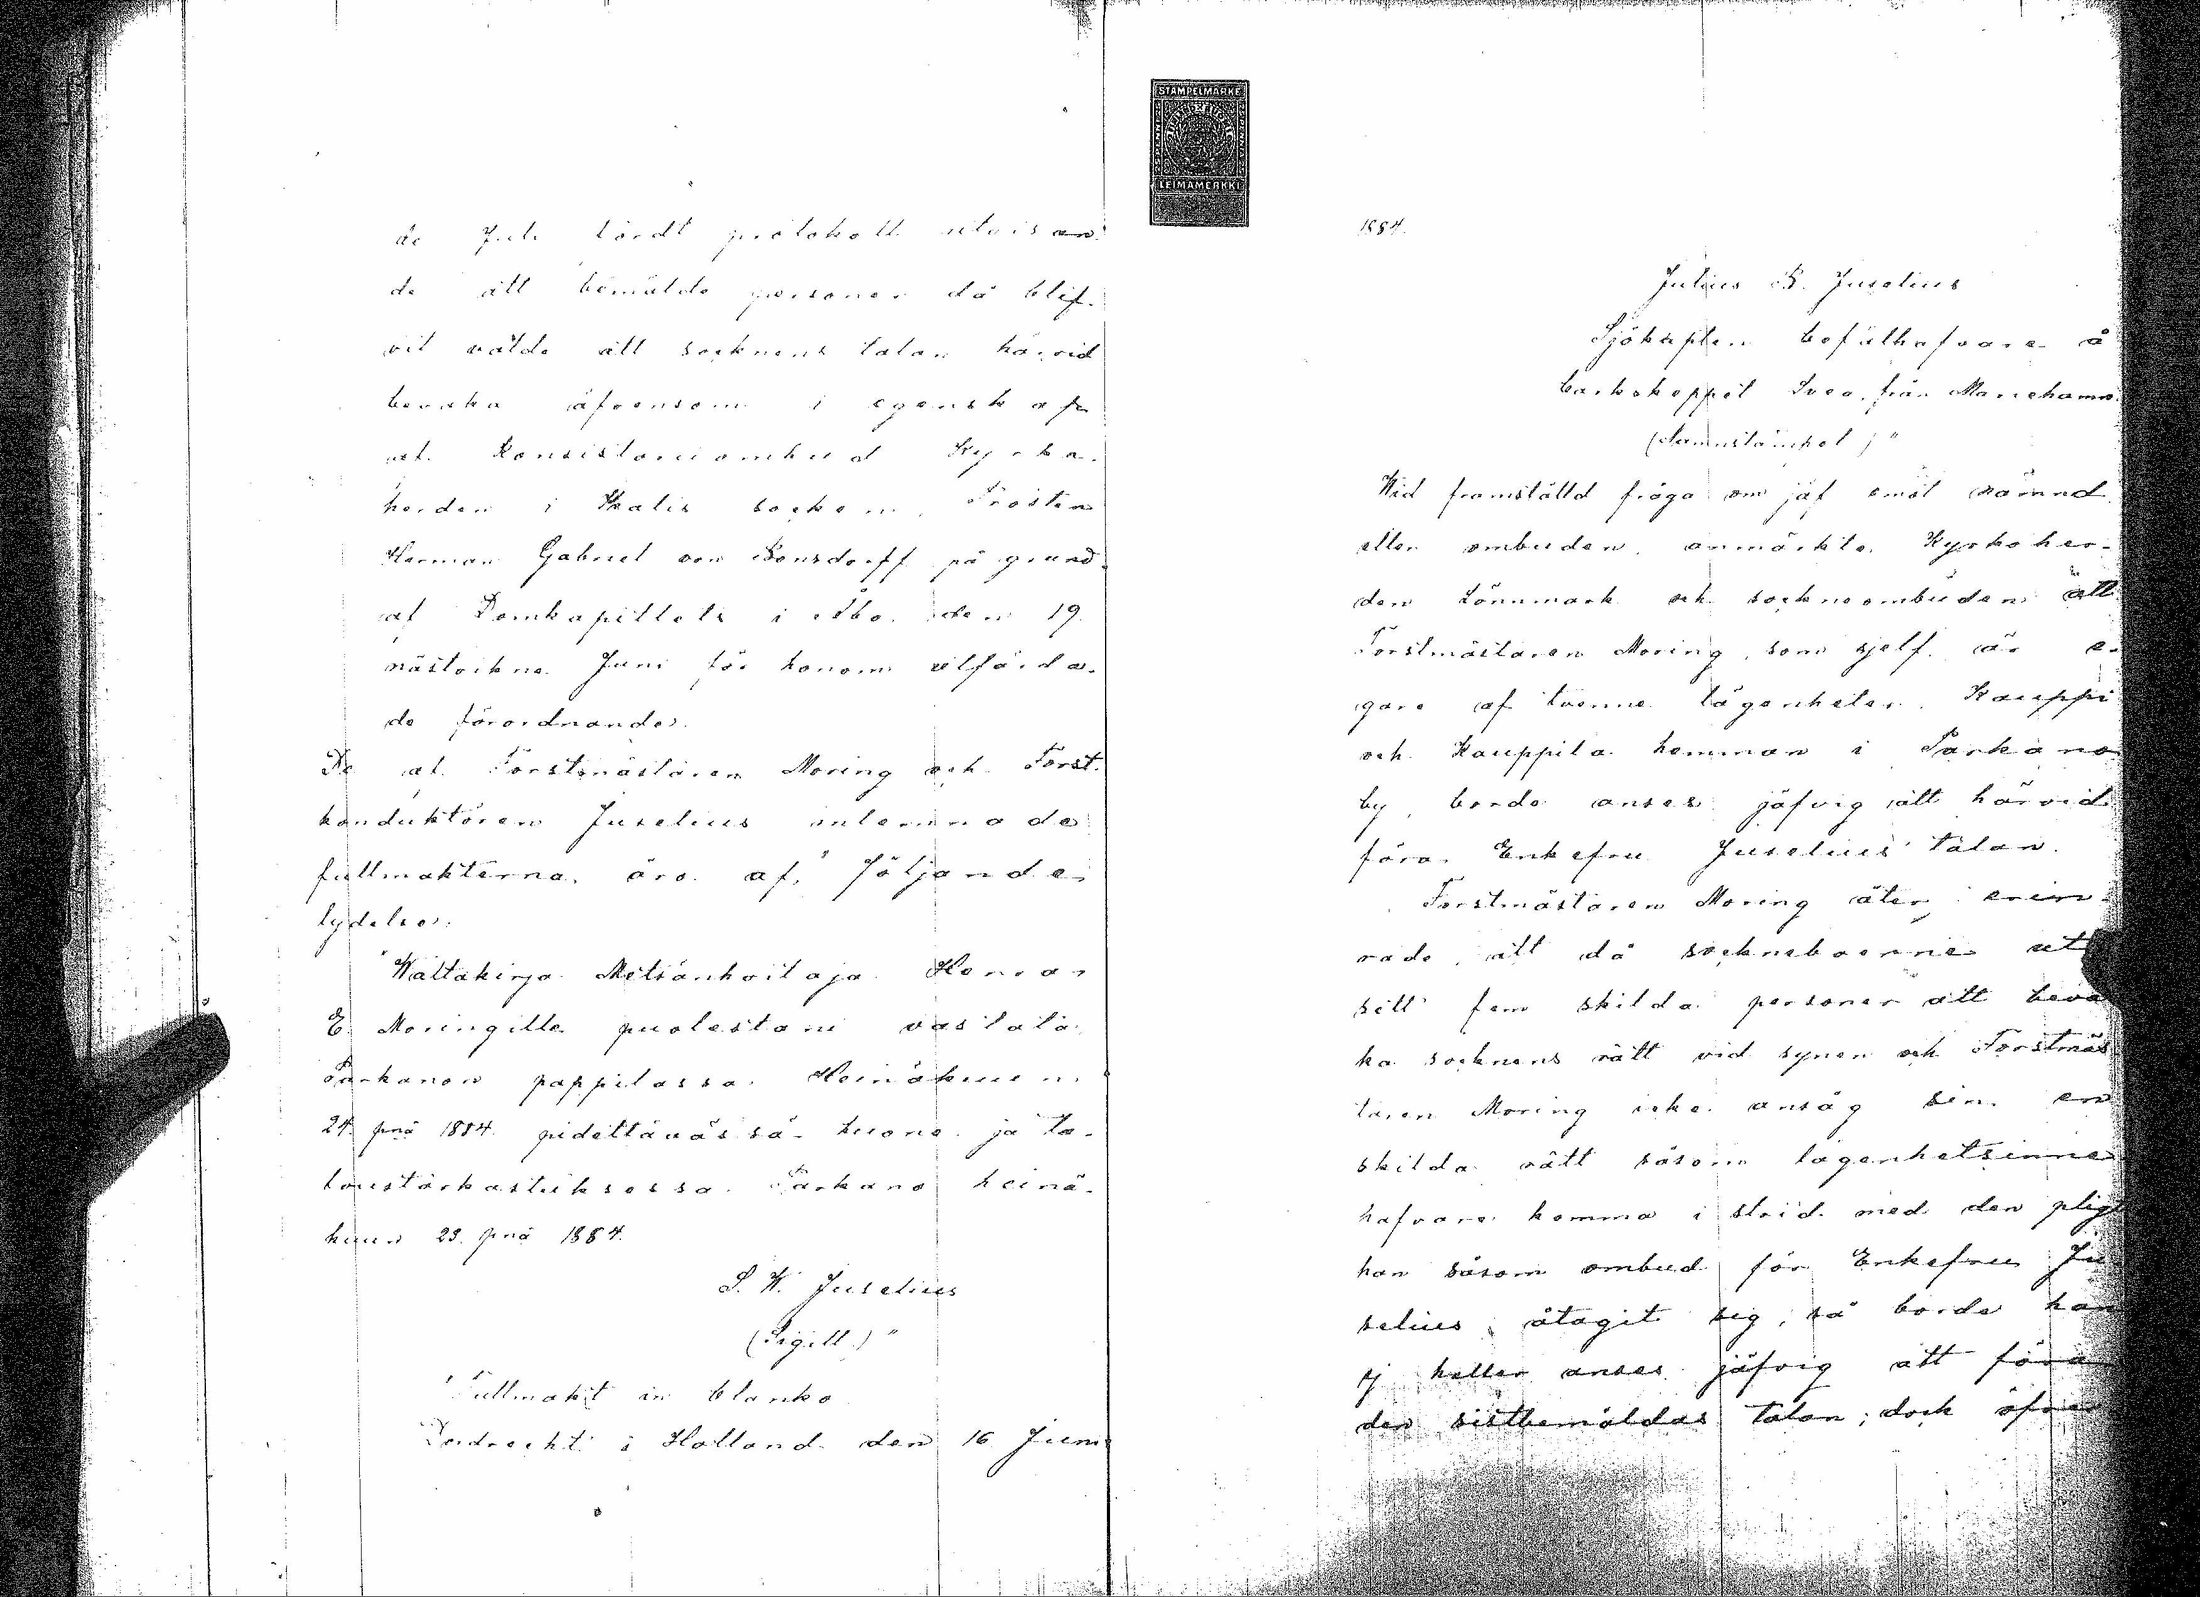 de Juli fördt protokoll utvisan-
de att bemälde personer då blif-
vit valde att socknens talan härvid
bevaka äfvensom i egenskap
af Konsistorii ombud Kyrko-
herden i Ikalis socken, Prosten
Herman Gabriel von Bonsdorff på grund
af Domkapitlets i Åbo den 19
nästvikne Juni för honom utfärda-
de förordnande.
De af Forstmästaren Moring och Forst-
konduktören Juselius inlemnade
fullmakterna äro af följande
lydelse:
"Waltakirja Metsänhoitaja Herra
E. Moringille puolestani vastata
Parkanon pappilassa Heinäkuun
24 pnä 1884 pidettävässä huone ja ta-
loustarkastuksessa. Parkano heinä-
kuun 23 pnä 1884.
S. W. Juselius
(Sigill)"
"Fullmakt in blanko
Dordrecht i Holland den 16 Juni
STAMPELMARKE
LEIMAMERKKI
1884.
Julius B. Juselius
Sjökapten befälhafvare å
barkskeppet Svea från Mariehamn
(Namnstämpel)"
Wid framställd fråga om jäf emot nämnd
eller ombuden, anmärkte Kyrkoher-
den Lönnmark och sockneombuden att
Forstmästaren Moring, som sjelf är e-
gare af tvenne lägenheter, Kauppi
och Kauppila hemman i Parkano
by, borde anses jäfvig att härvid
föra Enkefru Juselius' talan.
Forstmästaren Moring åter erin-
rade, att då socknеboerne ut
sett fem skilda personer att beva
ka socknens rätt vid synen och Forstmäs
taren Moring icke ansåg sin en
skilda rätt såsom lägenhetsinne
hafvare komma i strid med den pligt
han såsom ombud för Enkefru Ju
selius åtagit sig, så borde han
ej heller anses jäfvig att föra
den sistbemäldas talan; dock öfver